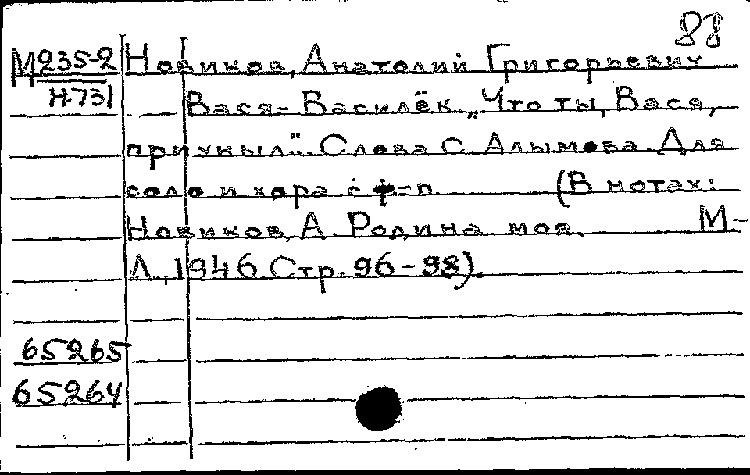 88
М235-2 Новиков, Анатолий Григорьевич
Н-731 Вася-Василёк „Что ты, Вася,
приуныл". Слова С. Алымова. Для
соло и хора с ф-п. (В нотах:
Новиков, А. Родина моя. М-
Л., 1946. Стр. 96-98).
65265
65264